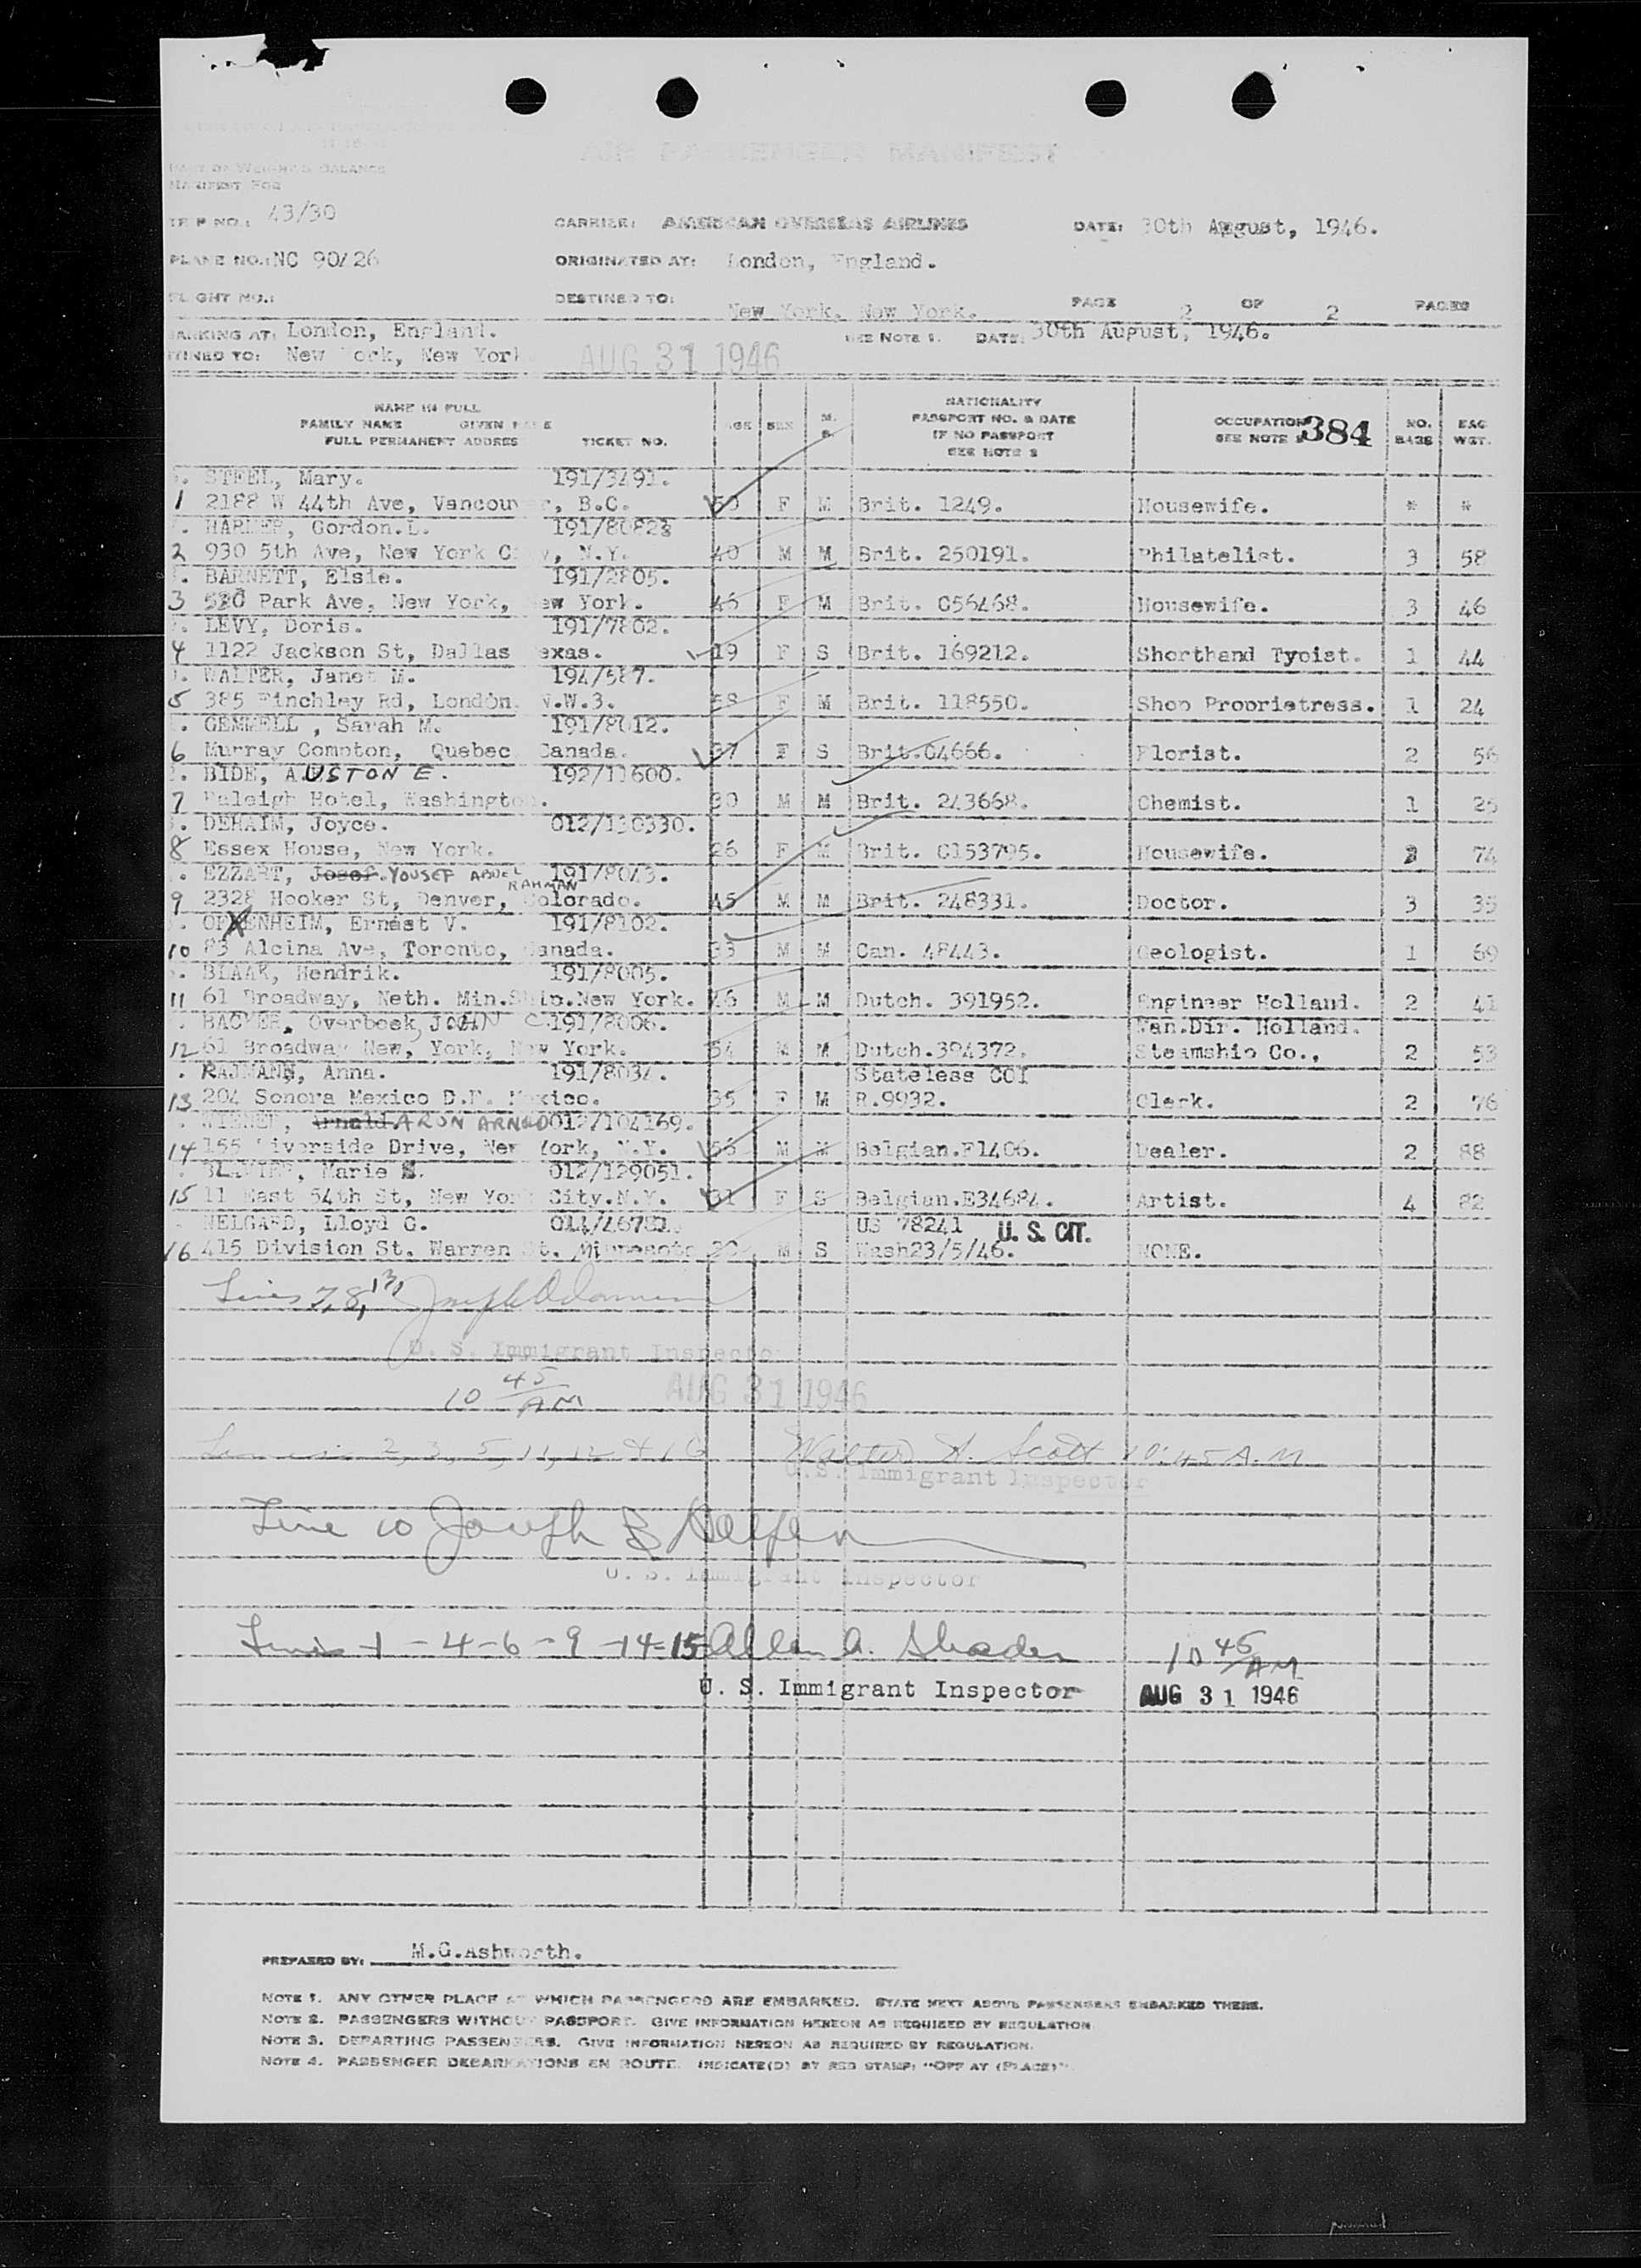 AIR PASSENGER MANIFEST
PART OF WEIGHT & BALANCE
MANIFEST FOR
TRIP NO.: 43/30
CARRIER: AMERICAN OVERSEAS AIRLINES
DATE: 30th August, 1946.
PLANE NO.: NC 90/26
ORIGINATED AT: London, England.
FLIGHT NO.:
DESTINED TO: New York, New York.
PAGE 2 OF 2 PAGES
BARKING AT: London, England.
SEE NOTE 1. DATE: 30th August, 1946.
TINED TO: New York, New York
AUG 31 1946
NAME IN FULL
FAMILY NAME GIVEN NAME
FULL PERMANENT ADDRES TICKET NO.
AGE SEX M. S.
NATIONALITY
PASSPORT NO. & DATE
IF NO PASSPORT
SEE NOTE 2
OCCUPATION
SEE NOTE 384
NO. BAGS
BAG WGT.
STEEL, Mary. 191/3491.
1 2188 W 44th Ave, Vancouver, B.C. 50 F M Brit. 1249. Housewife. * *
HARMER, Gordon.L. 191/8082
2 930 5th Ave, New York City, N.Y. 40 M M Brit. 250191. Philatelist. 3 58
BARNETT, Elsie. 191/2805.
3 520 Park Ave, New York, New York. 46 F M Brit. C56468. Housewife. 3 46
LEVY, Doris. 191/7802.
4 1122 Jackson St, Dallas Texas. 19 F S Brit. 169212. Shorthand Typist. 1 44
WALTER, Janet M. 194/587.
5 385 Finchley Rd, London. N.W.3. 58 F M Brit. 118550. Shop Proprietress. 1 24
GEMMELL , Sarah M. 191/8012.
6 Murray Compton, Quebec Canada. 37 F S Brit.C4666. Florist. 2 56
BIDE, AUSTON E. 192/11600.
7 Raleigh Hotel, Washington. 30 M M Brit. 243668. Chemist. 1 25
DEHAIM, Joyce. 012/130330.
8 Essex House, New York. 26 F M Brit. C153795. Housewife. 74
EZZART, Josef. YOUSEF ABDEL RAHMAN 191/8043.
9 2328 Hooker St, Denver, Colorado. 45 M M Brit. 248331. Doctor. 3 35
OPPENHEIM, Ernest V. 191/8102.
10 83 Alcina Ave, Toronto, Canada. 33 M M Can. 48443. Geologist. 1 69
BLAAK, Hendrik. 191/8005.
11 61 Broadway, Neth. Min.Ship.New York. 46 M M Dutch. 391952. Engineer Holland. 2 41
BACKER, Overbeek, JOHN C 191/8006. Man.Dir. Holland.
12 61 Broadway New, York, New York. 54 M M Dutch.394372. Steamship Co., 2 53
RAJMANN, Anna. 191/8034. Stateless COI
13 204 Sonora Mexico D.F. Mexico. 35 F M R.9932. Clerk. 2 76
WIENER, Arnold. ARON ARNOLD 012/104169.
14 155 Riverside Drive, New York, N.Y. 56 M M Belgian.F1406. Dealer. 2 88
Marie S. 012/129051.
15 11 East 54th St, New York City.N.Y. 31 F S Belgian.E34684. Artist. 4 82
HELGARD, Lloyd G. 011/ US 78241 U. S. CIT.
16 415 Division St. Warren St. Minnesota M S Wash23/5/46. NONE.
Lines 7, 8, 13,
U. S. Immigrant Inspector
10 45 AM AUG 31 1946
Lines 2, 3, 5, 11, 12 & 16 Walter A. Scott 10:45 A.M
U.S. Immigrant Inspector
Line 10 Joseph B
U. S. Immigrant Inspector
Lines 1 - 4 - 6 - 9 - 14 - 15 Allen A. Shader 10 45 AM
U. S. Immigrant Inspector AUG 31 1946
PREPARED BY: M.G.Ashworth.
NOTE 1. ANY OTHER PLACE AT WHICH PASSENGERS ARE EMBARKED. STATE NEXT ABOVE PASSENGERS EMBARKED THERE.
NOTE 2. PASSENGERS WITHOUT PASSPORT. GIVE INFORMATION HEREON AS REQUIRED BY REGULATION
NOTE 3. DEPARTING PASSENGERS. GIVE INFORMATION HEREON AS REQUIRED BY REGULATION.
NOTE 4. PASSENGER DEBARKATIONS EN ROUTE. INDICATE(D) BY RED STAMP: "OFF AT (PLACE)".